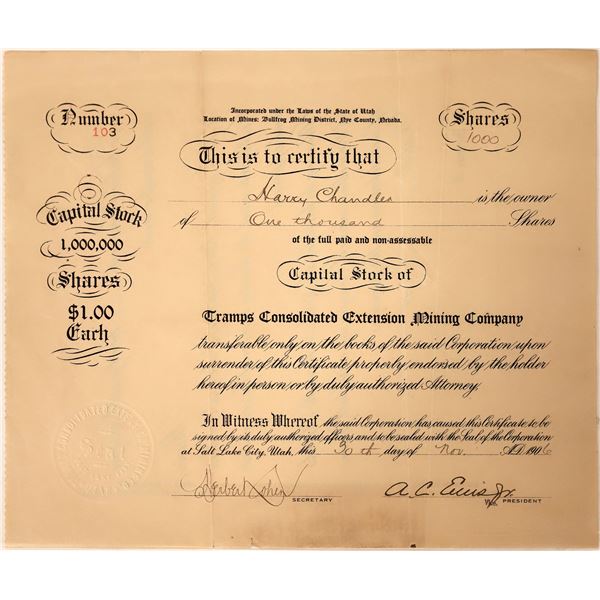 Number
103
Incorporated under the Laws of the State of Utah
Location of Mines: Bullfrog Mining District, Nye County, Nevada.
Shares
1000
This is to certify that
Harry Chandler is the owner
of One thousand Shares
of the full paid and non-assessable
Capital Stock of
Capital Stock
1,000,000
Shares
$1.00
Each
Tramps Consolidated Extension Mining Company
transferable only on the books of the said Corporation upon
surrender of this Certificate properly endorsed by the holder
hereof in person or by duly authorized Attorney.
In Witness Whereof, the said Corporation has caused this Certificate to be
signed by its duly authorized officers and to be sealed with the Seal of the Corporation
at Salt Lake City, Utah, this 30th day of Nov. A.D. 1906
Seal
Herbert Cohen
SECRETARY
A. C. Ellis Jr.
Vice PRESIDENT